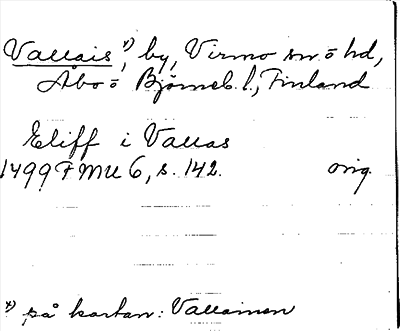 Vallais *), by, Virmo sn ō hd,
Åbo ō Björneb. l., Finland
Eliff i Vallas
1499 FMU 6, s. 142. orig.
*) på kartan: Vallainen